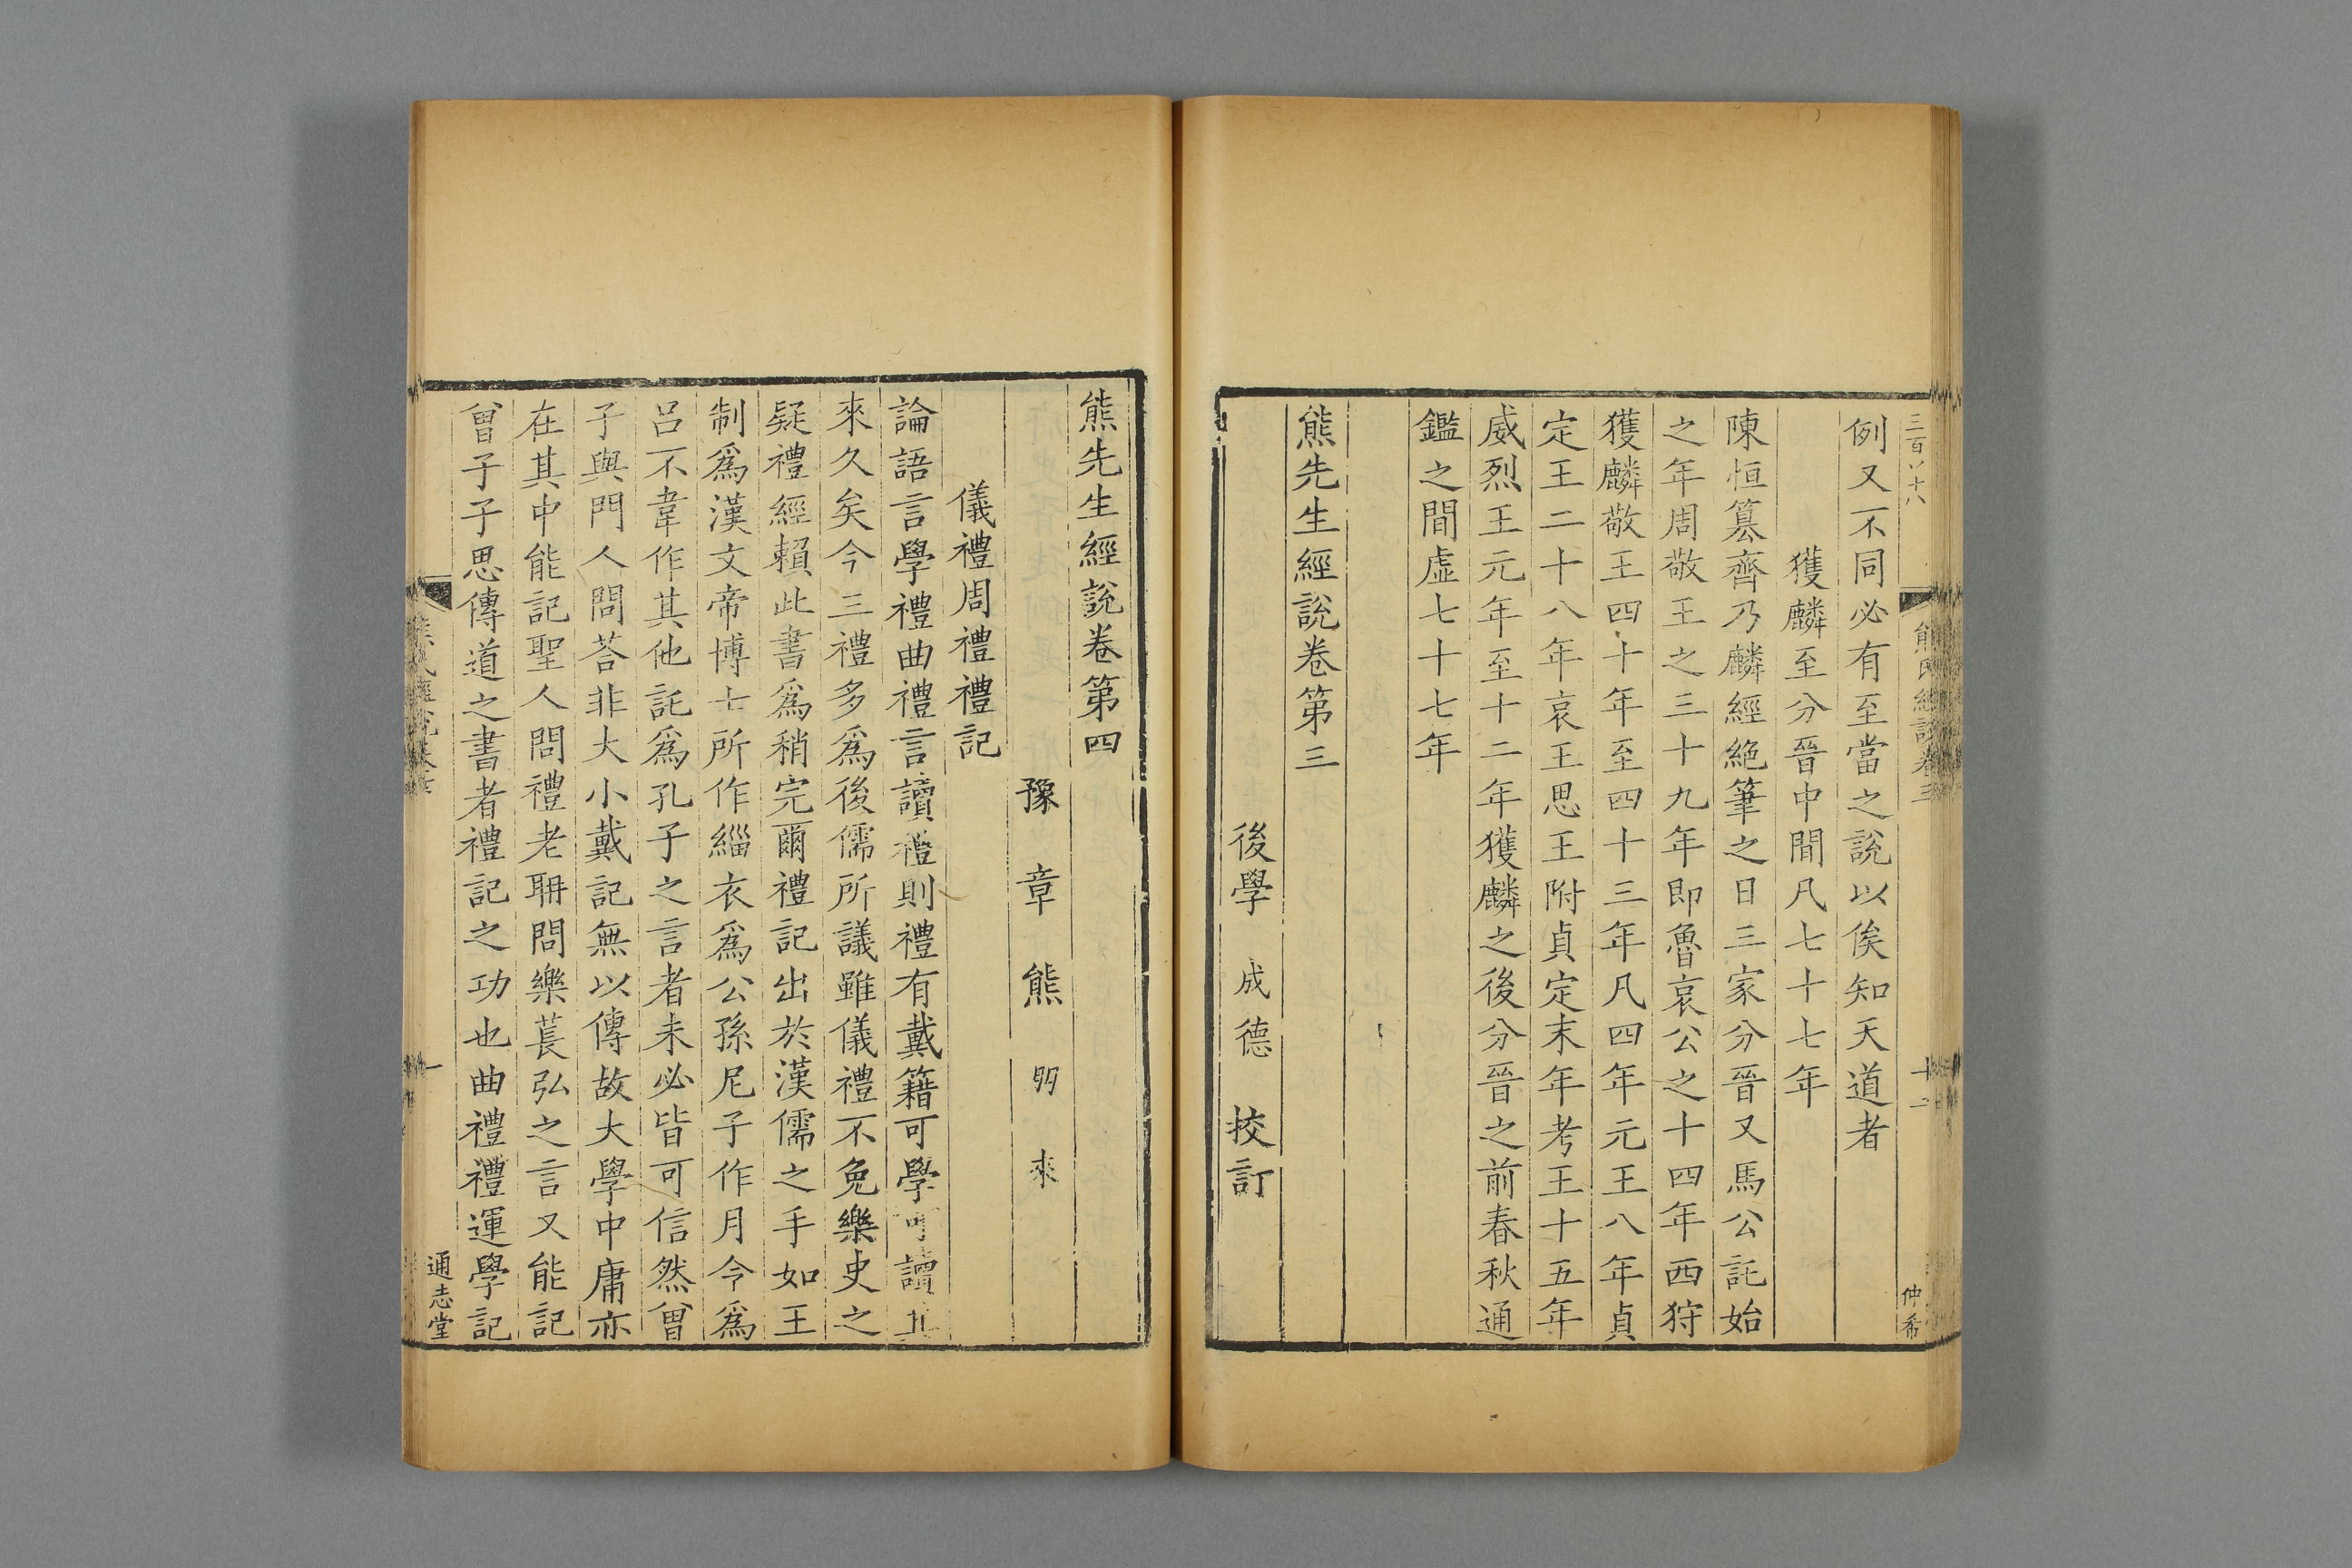 例又不同必有至當之說以俟知天道者
獲麟至分晉中間凡七十七年
陳恒簒齊乃麟經絶筆之日三家分晉又馬公託始
之年周敬王之三十九年即魯哀公之十四年西狩
獲麟敬王四十年至四十三年凡四年元王八年貞
定王二十八年哀王思王附貞定末年考王十五年
威烈王元年至十二年獲麟之後分晉之前春秋通
鑑之間虛七十七年
熊先生經說卷第三
後學 成德 挍訂
仲希
熊先生經說卷第四
豫章熊朋來
儀禮周禮禮記
論語言學禮曲禮言讀禮則禮有戴籍可學可讀
來久矣今三禮多爲後儒所議雖儀禮不免樂史之
疑禮經賴此書爲稍完爾禮記出於漢儒之手如王
制爲漢文帝博士所作緇衣爲公孫尼子作月令爲
呂不韋作其他託爲孔子之言者未必皆可信然曾
子與門人問荅非大小戴記無以傳故大學中庸亦
在其中能記聖人問禮老聃問樂萇弘之言又能記
曾子子思傳道之書者禮記之功也曲禮禮運學記
通志堂